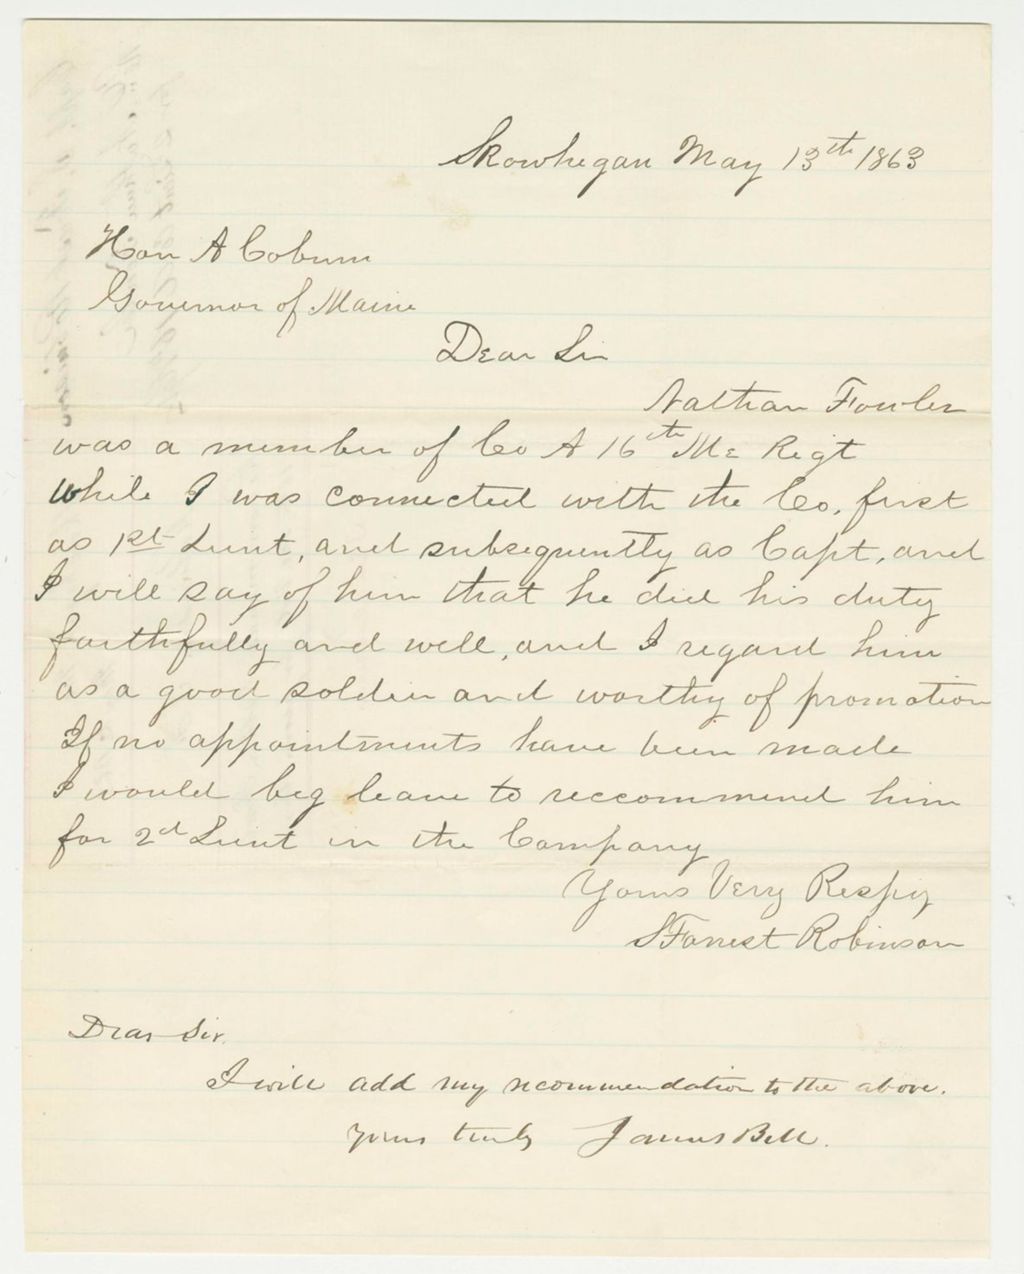 Skowhegan May 13th 1863
Hon A Coburn
Governor of Maine
Dear Sir
Nathan Fowler
was a member of Co A 16th Me Regt
while I was connected with the Co, first
as 1st Lieut, and subsequently as Capt, and
I will say of him that he did his duty
faithfully and well, and I regard him
as a good soldier and worthy of promotion
If no appointments have been made
I would beg leave to reccommend him
for 2d Lieut in the Company
Yours Very Respy
S Forrest Robinson
Dear Sir.
I will add my recommendation to the above.
Yours truly James Bell.